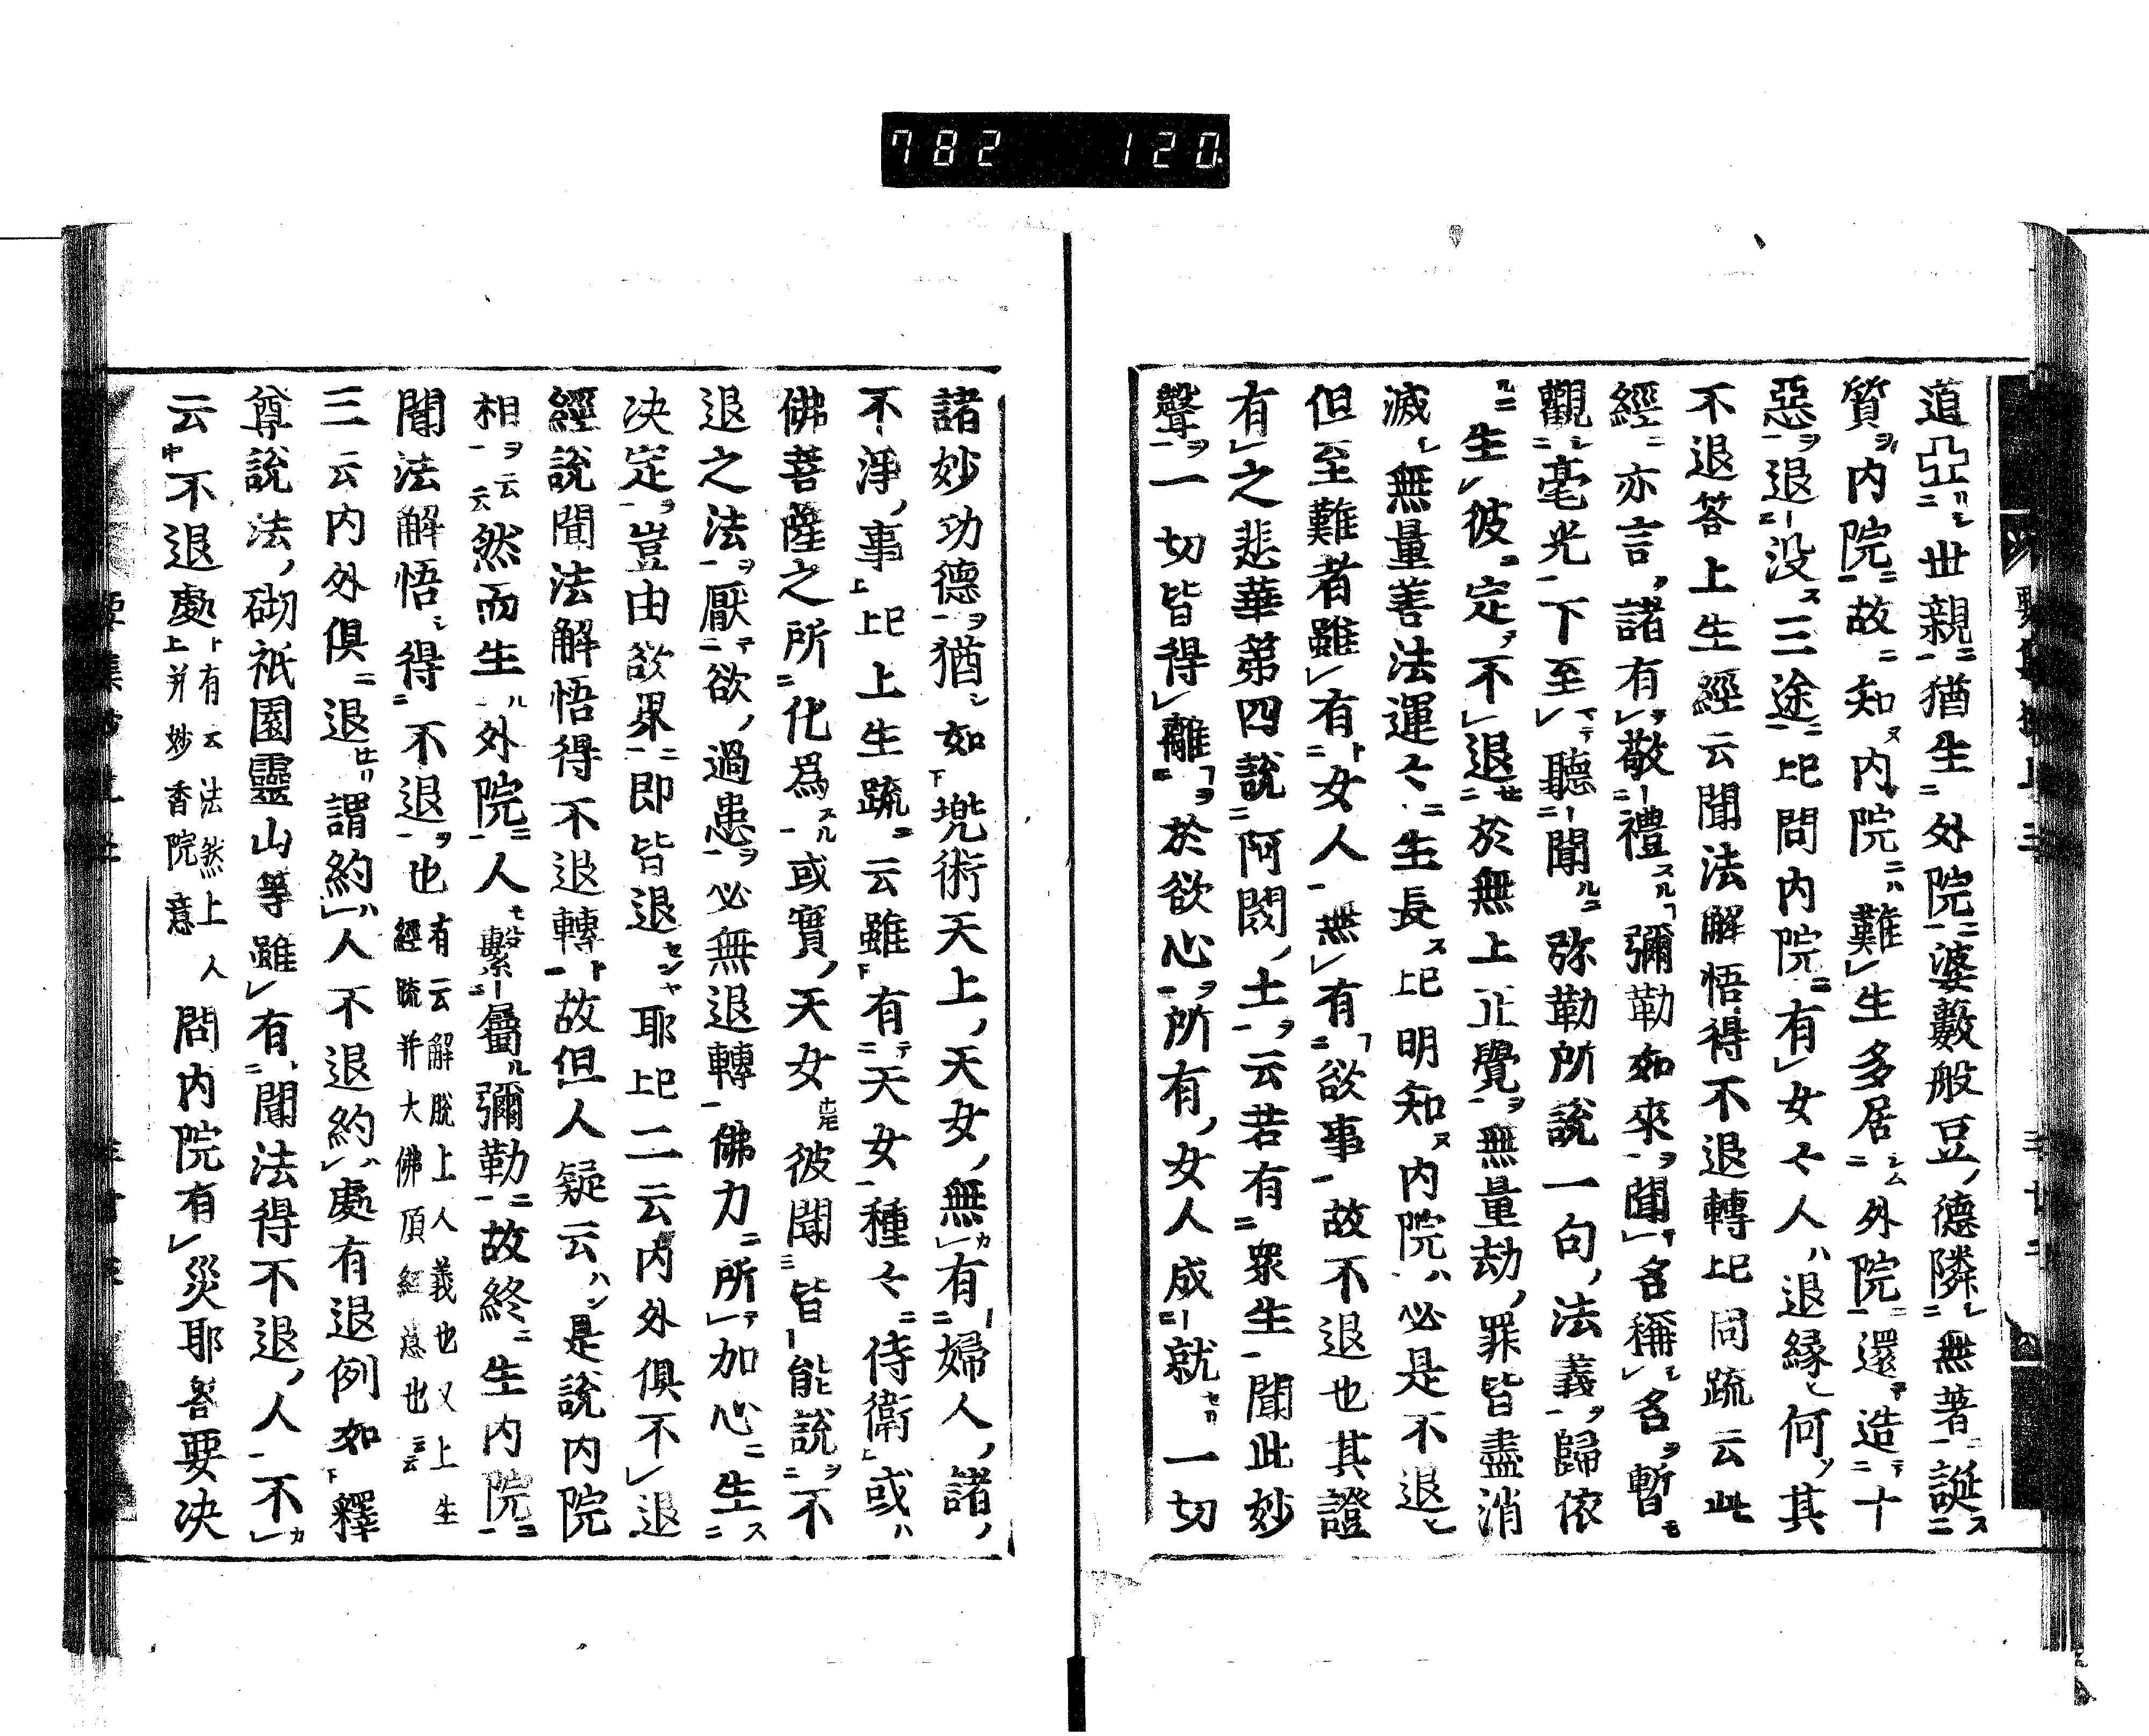 782 120
道亞世親猶生外院婆藪般豆德隣無著誕
質内院故知内院難生多居外院還造十
惡退没三途已上問内院有女々人退縁何其
不退答上生經云聞法解悟得不退轉已上同疏云此
經亦言諸有敬禮彌勒如來聞名稱名暫
觀毫光下至聽聞弥勒所說一句法義歸依
生彼定不退於無上正覺無量劫罪皆盡消
滅無量善法運々生長已上明知内院必是不退
但至難者雖有女人無有欲事故不退也其證
有之悲華第四說阿閦土云若有衆生聞此妙
聲一切皆得離於欲心所有女人成就一切
諸妙功德猶如兠術天上天女無有婦人諸
不淨事已上上生疏云雖有天女種々侍衛或
佛菩薩之所化爲或實天女彼聞皆能說不
退之法厭欲過患必無退轉佛力所加心生
决定豈由欲界即皆退耶已上二云内外俱不退
經說聞法解悟得不退轉故但人疑云是說内院
相云云然而生外院人繫屬彌勒故終生内院
聞法解悟得不退也有云解脱上人義也又上生經疏并大佛頂經意也云云
三云内外俱退謂約人不退約處有退例如釋
尊說法砌祇園靈山等雖有聞法得不退人不
云不退處有云法然上人上并妙香院意問内院有災耶答要决